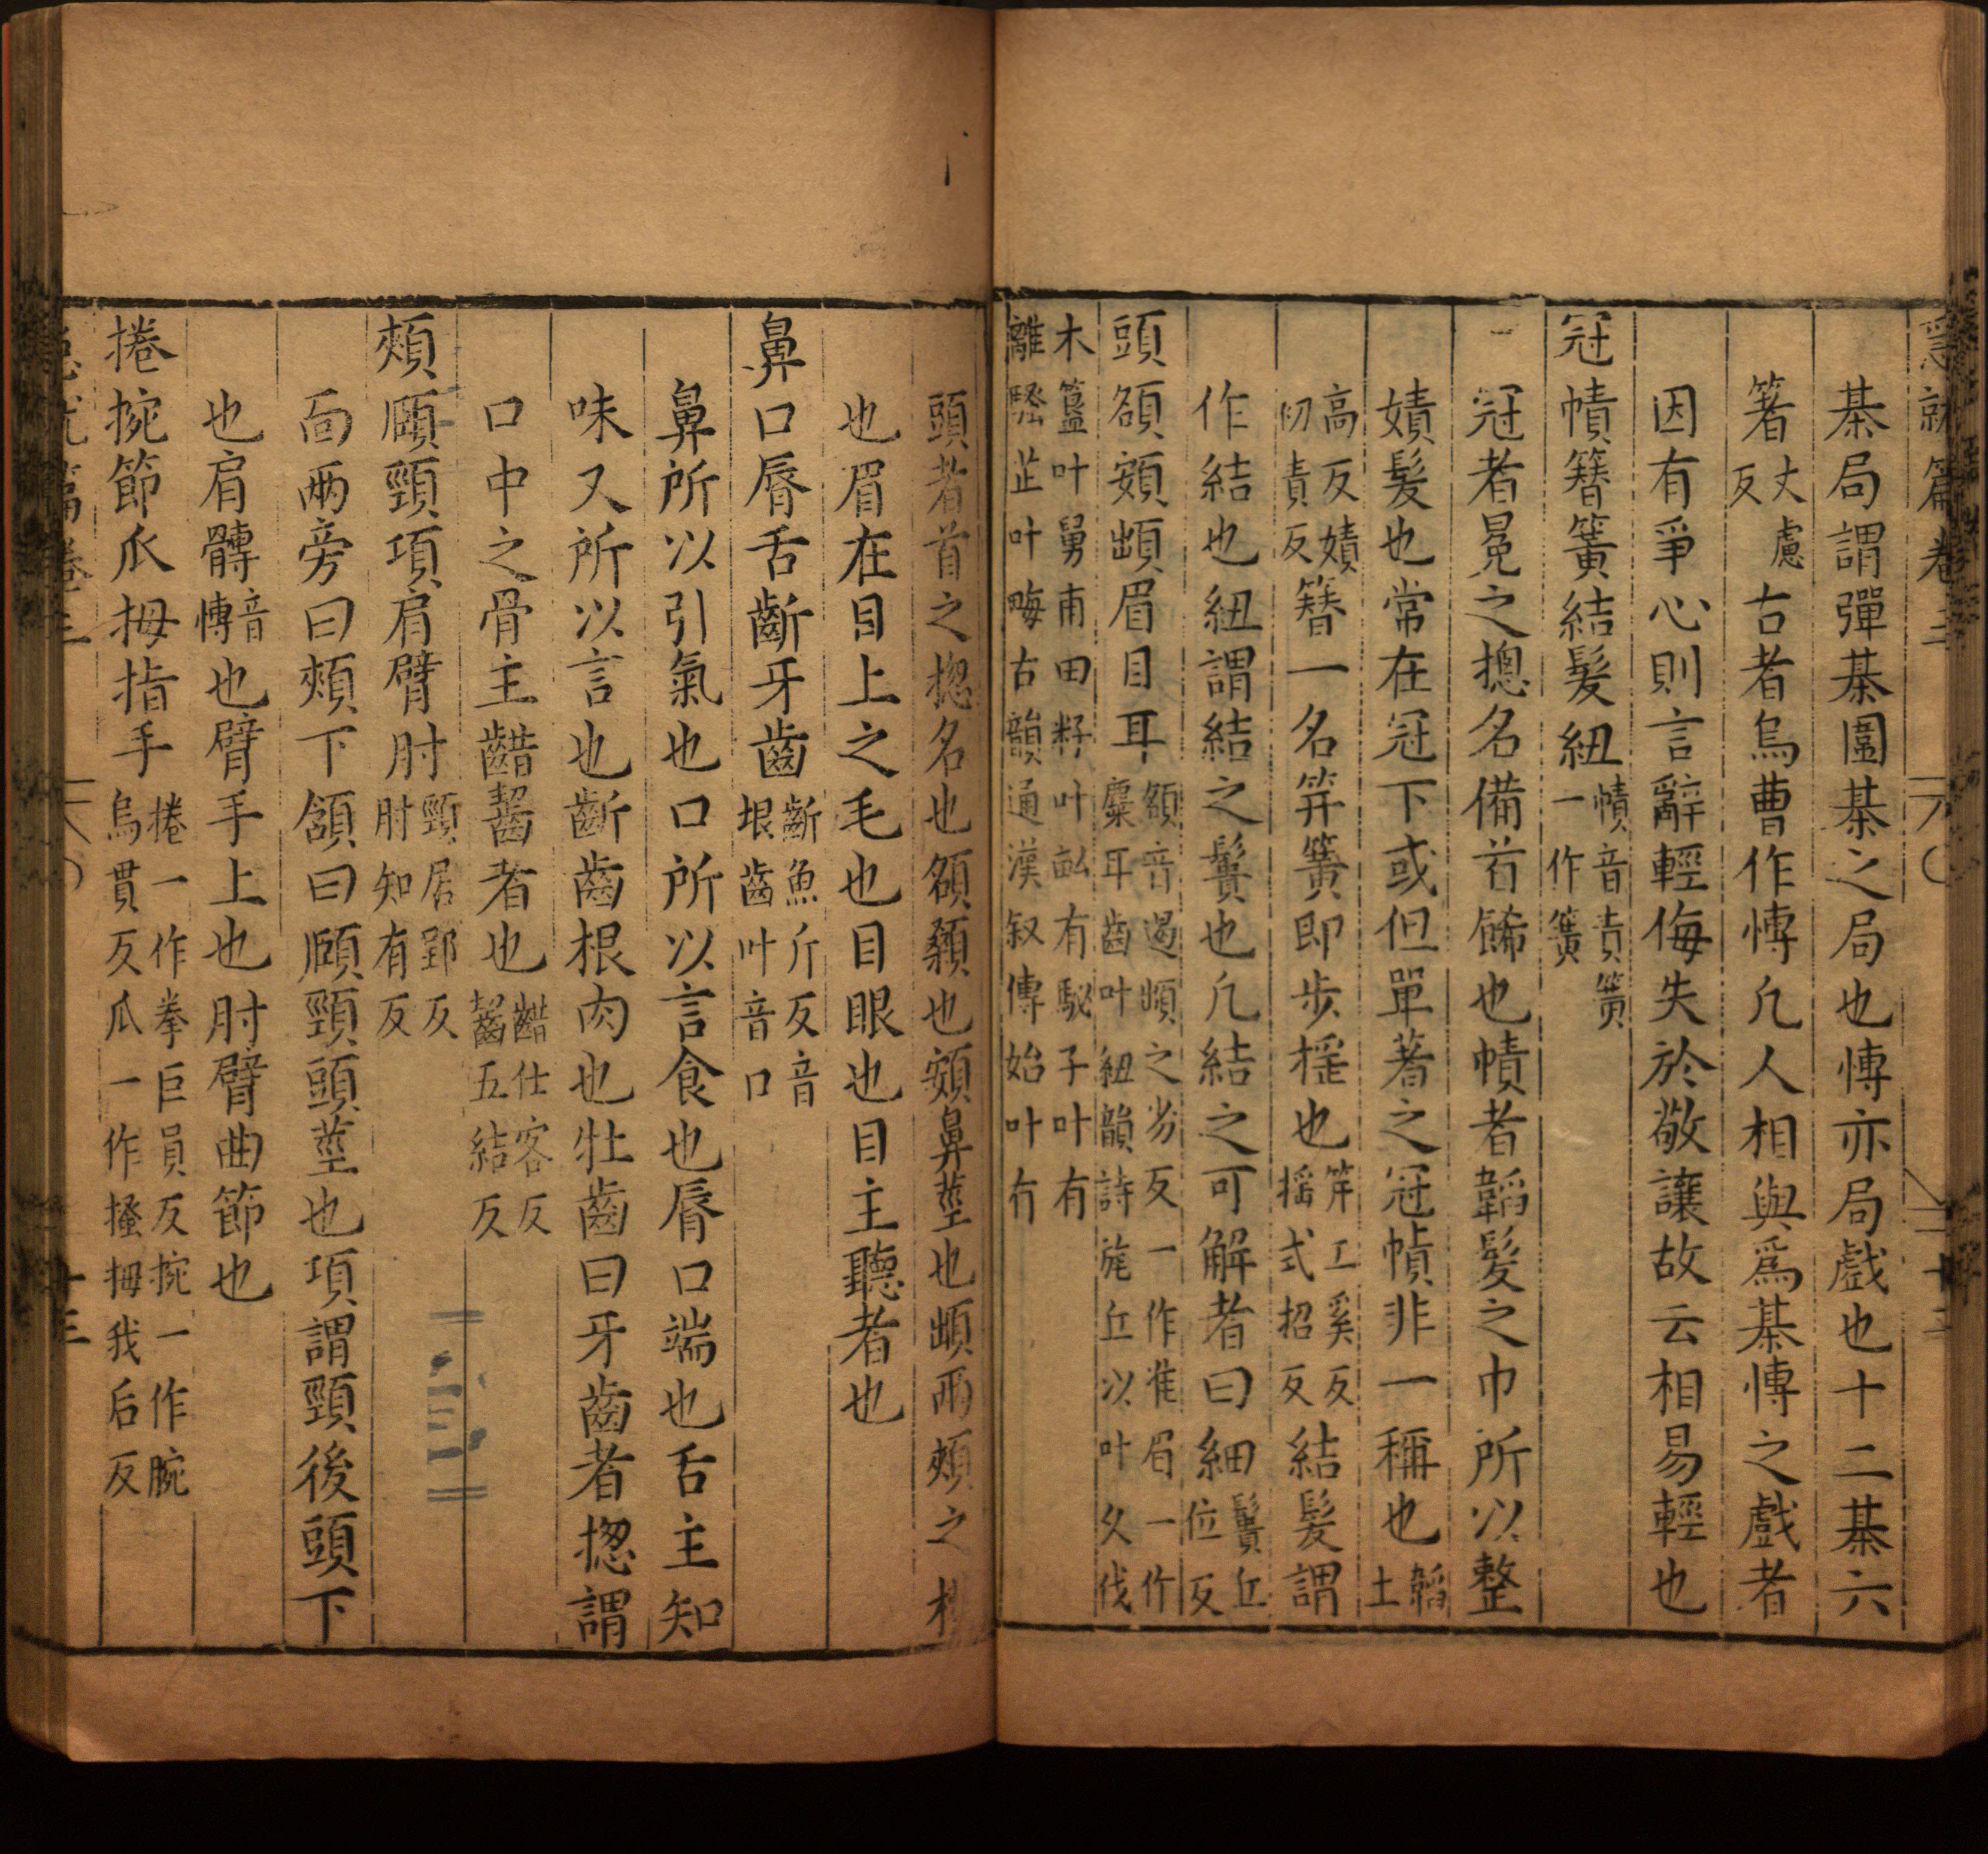 急就篇卷三
十二
棊局謂彈棊圍棊之局也博亦局戲也十二棊六
箸丈慮反古者烏曹作博凡人相與爲棊博之戲者
因有爭心則言辭輕侮失於敬讓故云相易輕也
冠幘簪簧結髮紐幘音責簧一作簧
冠者冕之摠名備首飾也幘者韜髮之巾所以整
嫧髮也常在冠下或但單著之冠幘非一稱也韜土
高反嫧切責反簪一名筓簧即步摇也筓工奚反摇式招反結髮謂
作結也紐謂結之鬢也凡結之可解者曰細鬢丘位反
頭頟頞䪼眉目耳頟音遏䪼之劣反一作準眉一作麋耳齒叶紐韻詩旄丘以叶久伐
木簋叶舅甫田籽叶畝有駜子叶有離騷芷叶晦古韻通漢叙傳始叶有
頭者首之揔名也頟顙也頞鼻莖也䪼兩頰之權
也眉在目上之毛也目眼也目主聽者也
鼻口脣舌齗牙齒齗魚斤反音垠齒叶音口
鼻所以引氣也口所以言食也脣口端也舌主知
味又所以言也齗齒根肉也壯齒曰牙齒者揔謂
口中之骨主齰齧者也齰仕客反齧五結反
頰頤頸項肩臂肘頸居郢反肘知有反
面兩旁曰頰下頷曰頤頸頭莖也項謂頸後頭下
也肩髆音博也臂手上也肘臂曲節也
捲捥節爪拇指手捲一作拳巨員反捥一作腕烏貫反爪一作搔拇我后反
急就篇卷三
十三